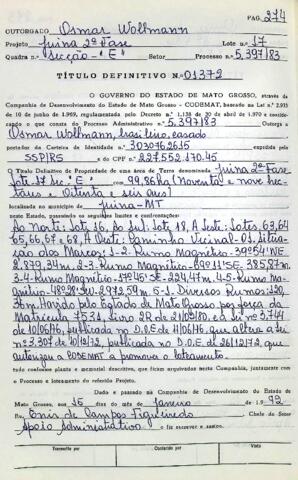 PAG. 274
OUTORGADO Osmar Wollmann
Projeto Juina 2ª Fase Lote nº 17
Quadra nº Secção "E" Setor Processo nº 5.397/83
TÍTULO DEFINITIVO Nº 01372
O GOVERNO DO ESTADO DE MATO GROSSO, através da
Companhia de Desenvolvimento do Estado de Mato Grosso - CODEMAT, baseado na Lei n.º 2.933
de 10 de junho de 1.969, regulamentada pelo Decreto n.º 1.138 de 20 de abril de 1.970 e considerando
o que consta do Processo Administrativo n.º 5.397/83 Outorga a
Osmar Wollmann, brasileiro, casado
portador da Carteira de Identidade n.º 3030762635 expedida por
SSP/RS e do CPF n.º 227.552.170.45
o Título Definitivo de Propriedade de uma área de Terra denominada Juina 2ª Fase
Lote 17 Sec. "E" com 99,86 ha (Noventa e nove hec-
táres e Oitenta e seis ares)
localizada no município de Juina-MT
neste Estado, possuindo os seguintes limites e confrontações:
Ao Norte: Lote 16, Ao Sul: Lote 18, A Leste: Lotes 63, 64
65, 66, 67 e 68, A Oeste: Caminho Vicinal 01. Situa-
ção dos Marcos: 1-2- Rumo Magnético- 39º54'NE
2.879,34m. 2-3- Rumo Magnético- 69º11'SE, 385,87m.
3-4- Rumo Magnético- 37º45' SE- 224,47m. 4-5- Rumo Ma-
gnético- 2.972,59m. 5-1- Diversos Rumos:
36m. Havido pelo Estado de Mato Grosso por força da
Matrícula 7531, livro 2R de 21/03/80. Lei nº 3.744
de 10/06/76, publicada no D.O.E de 11/06/76, que altera a lei
nº 3.307 de 18/12/72, publicada no D.O.E. de 26/12/72, que
autorizou a CODEMAT a promover o loteamento.
tudo conforme planta e memorial descritivo, que ficam arquivados nesta Companhia, juntamente com
o Processo e loteamento do referido Projeto.
Dado e passado na Companhia de Desenvolvimento do Estado de
Mato Grosso, aos 15 dias do mês de Janeiro de 1992
Eu Enir de Campos Figueiredo Chefe do Setor
Apoio Administrativo o fiz escrever e assino.
Transcrito por Conferido por Visto